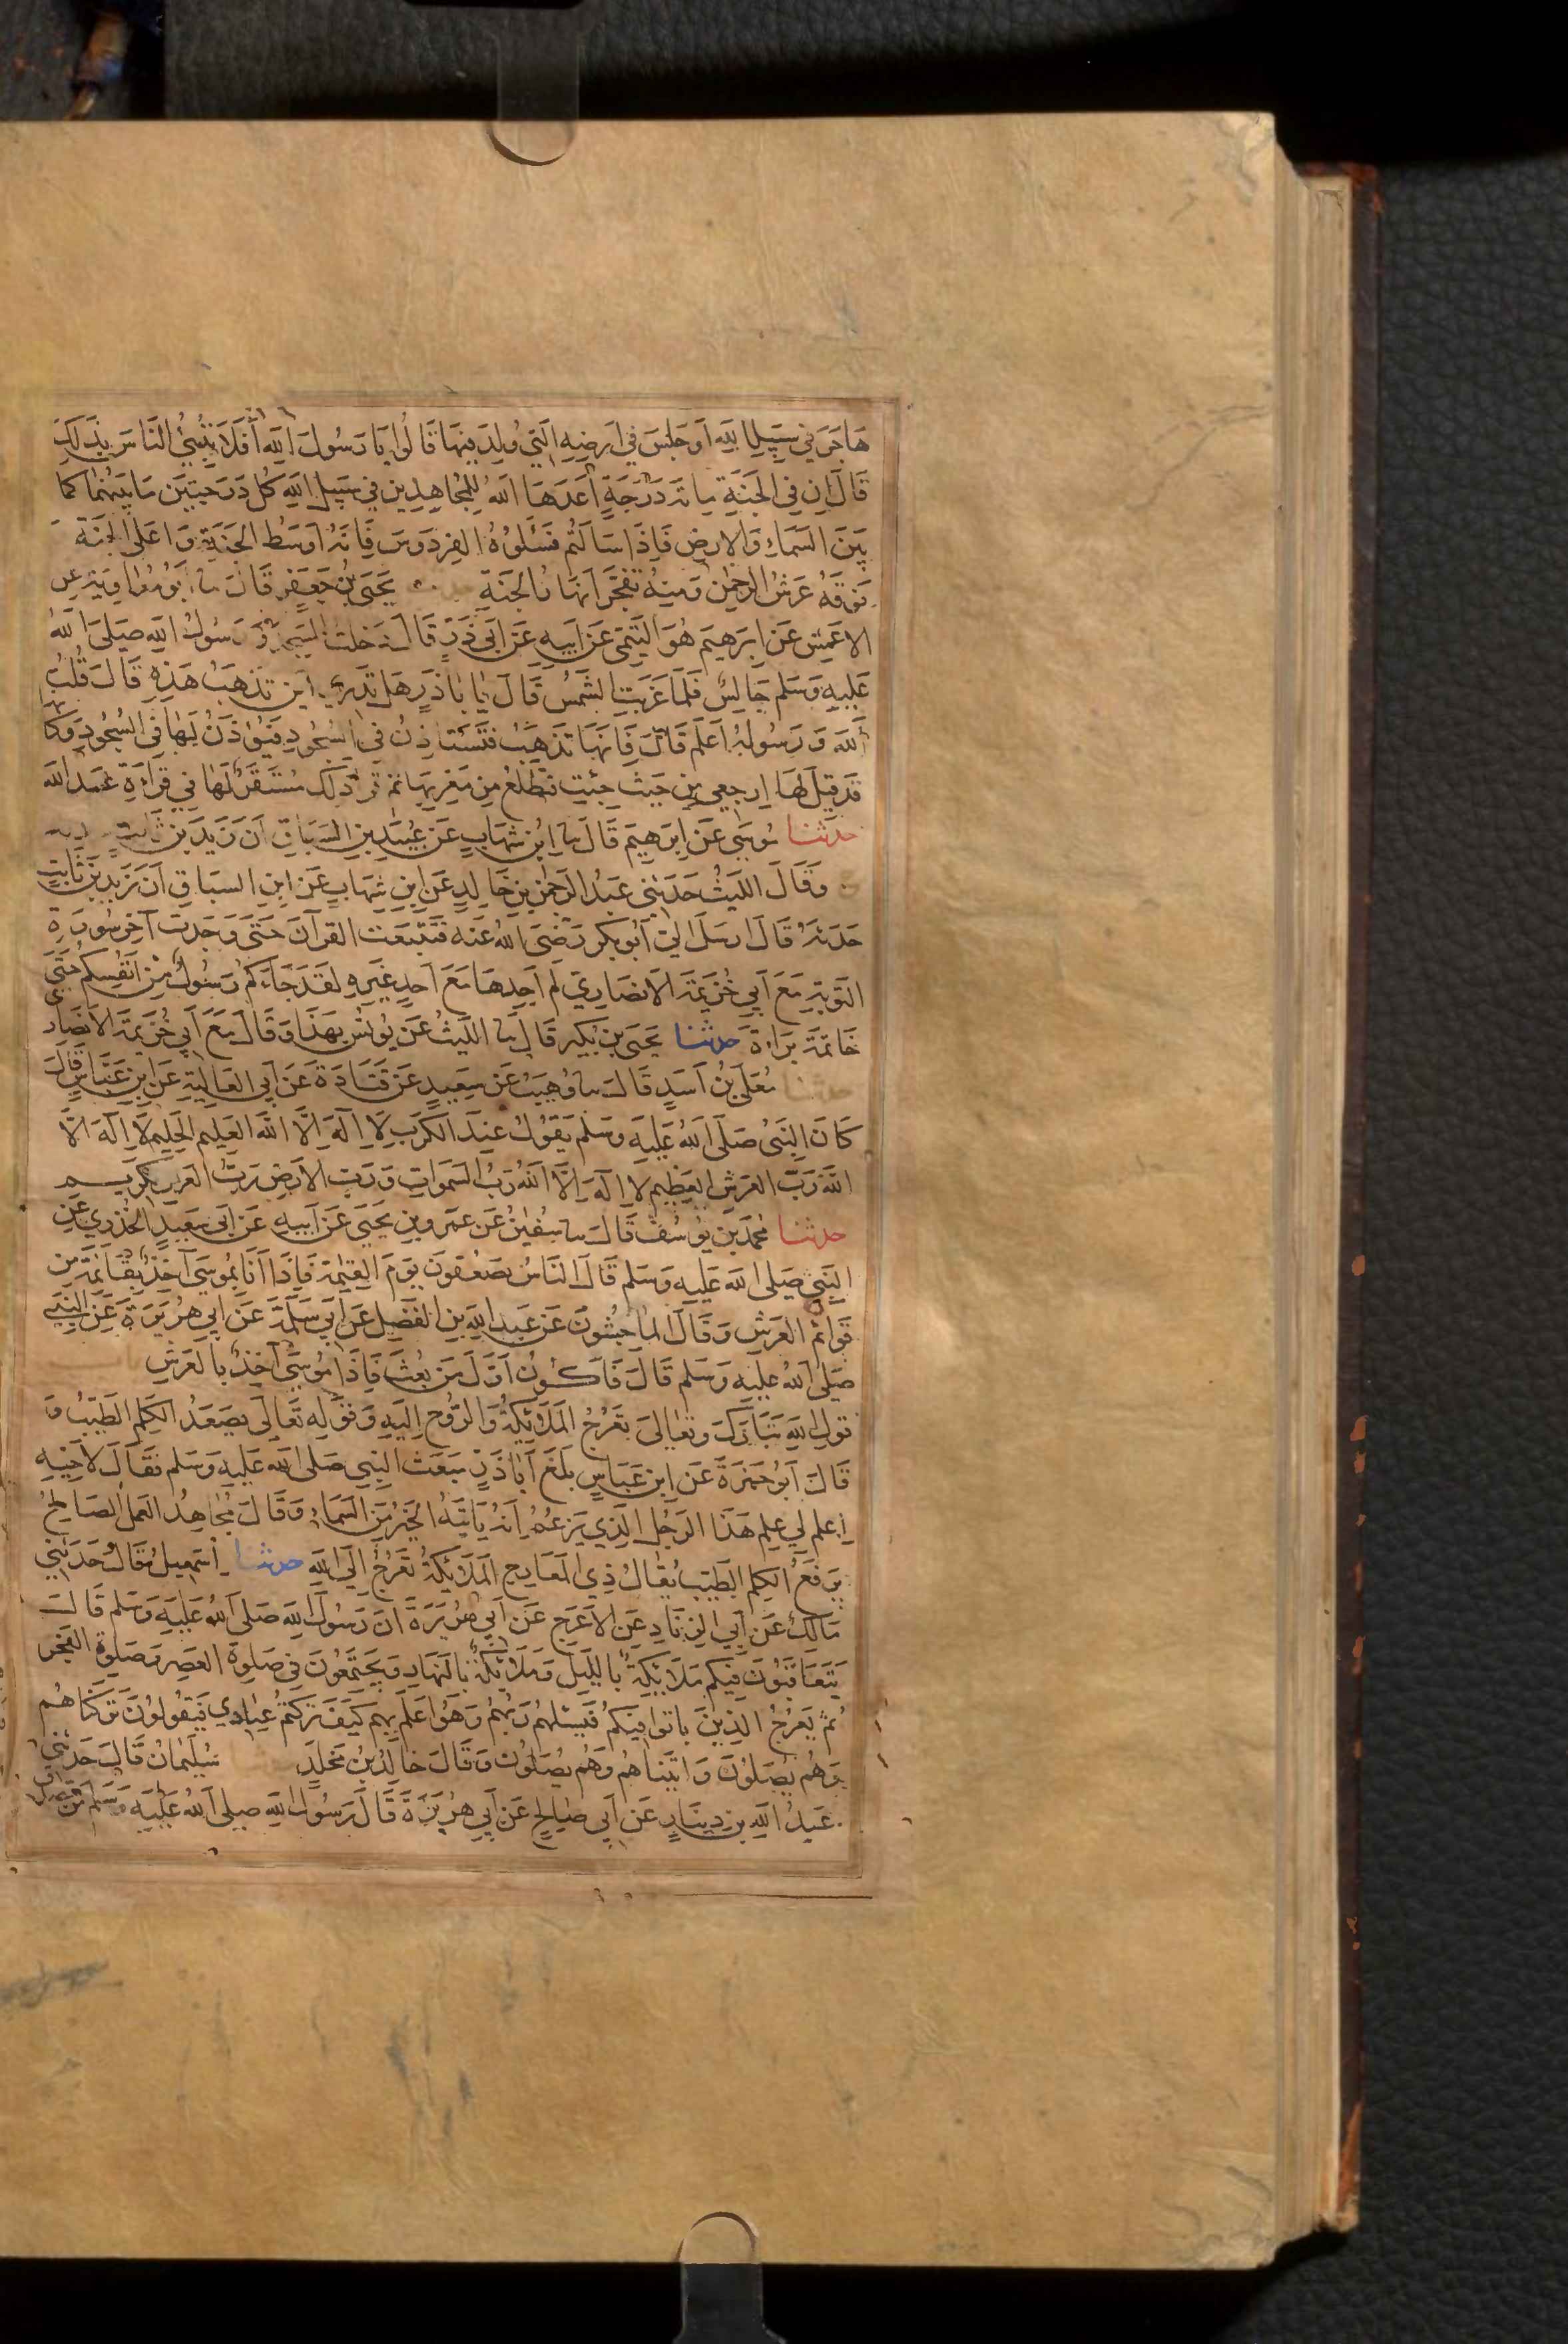 هَاجَرَ فِي سَبِيلِ اللَّهِ أَوْ جَلَسَ فِي أَرْضِهِ الَّتِي وُلِدَ فِيهَا قَالُوا يَا رَسُولَ اللَّهِ أَفَلَا نُنَبِّئُ النَّاسَ بِذَلِكَ
قَالَ إِنَّ فِي الْجَنَّةِ مِائَةَ دَرَجَةٍ أَعَدَّهَا اللَّهُ لِلْمُجَاهِدِينَ فِي سَبِيلِ اللَّهِ كُلُّ دَرَجَتَيْنِ مَا بَيْنَهُمَا كَمَا
بَيْنَ السَّمَاءِ وَالْأَرْضِ فَإِذَا سَأَلْتُمُ فَسَلُوهُ الْفِرْدَوْسَ فَإِنَّهُ أَوْسَطُ الْجَنَّةِ وَأَعْلَى الْجَنَّةِ
فَوْقَهُ عَرْشُ الرَّحْمَنِ وَمِنْهُ تَفَجَّرُ أَنْهَارُ الْجَنَّةِ يَحْيَى بْنُ جَعْفَرٍ قَالَ نا أَبُو مُعَاوِيَةَ عَنِ
الْأَعْمَشِ عَنْ إِبْرَهِيمَ هُوَ التَّيْمِيُّ عَنْ أَبِيهِ عَنْ أَبِي ذَرٍّ قَالَ دَخَلْتُ الْمَسْجِدَ وَرَسُولُ اللَّهِ صَلَّى اللَّهُ
عَلَيْهِ وَسَلَّمَ جَالِسٌ فَلَمَّا غَرَبَتِ الشَّمْسُ قَالَ يَا بَا ذَرٍّ هَلْ تَدْرِي أَيْنَ تَذْهَبُ هَذِهِ قَالَ قُلْتُ
اللَّهُ وَرَسُولُهُ أَعْلَمُ قَالَ فَإِنَّهَا تَذْهَبُ فَتَسْتَأْذِنُ فِي السُّجُودِ فَيُؤْذَنُ لَهَا فِي السُّجُودِ وَكَأَنَّهَا
قَدْ قِيلَ لَهَا ارْجِعِي مِنْ حَيْثُ جِئْتِ فَتَطْلُعُ مِنْ مَغْرِبِهَا ثُمَّ قَرَأَ ذَلِكَ مُسْتَقَرٌّ لَهَا فِي قِرَاءَةِ عَبْدِ اللَّهِ
حدثنا مُوسَى عَنْ إِبْرَهِيمَ قَالَ نا ابْنُ شِهَابٍ عَنْ عُبَيْدِ بْنِ السَّبَّاقِ أَنَّ زَيْدَ بْنَ ثَابِتٍ
وَقَالَ اللَّيْثُ حَدَّثَنِي عَبْدُ الرَّحْمَنِ بْنُ خَالِدٍ عَنِ ابْنِ شِهَابٍ عَنِ ابْنِ السَّبَّاقِ أَنَّ زَيْدَ بْنَ ثَابِتٍ
حَدَّثَهُ قَالَ أَرْسَلَ إِلَيَّ أَبُو بَكْرٍ رَضِيَ اللَّهُ عَنْهُ فَتَتَبَّعْتُ الْقُرْآنَ حَتَّى وَجَدْتُ آخِرَ سُورَةِ
التَّوْبَةِ مَعَ أَبِي خُزَيْمَةَ الْأَنْصَارِيِّ لَمْ أَجِدْهَا مَعَ أَحَدٍ غَيْرِهِ لَقَدْ جَاءَكُمْ رَسُولٌ مِنْ أَنْفُسِكُمْ حَتَّى
خَاتِمَةَ بَرَاءَةَ حدثنا يَحْيَى بْنُ بُكَيْرٍ قَالَ نا اللَّيْثُ عَنْ يُونُسَ بِهَذَا وَقَالَ مَعَ أَبِي خُزَيْمَةَ الْأَنْصَارِي
حدثنا مُعَلَّى بْنُ أَسَدٍ قَالَ نا وُهَيْبٌ عَنْ سَعِيدٍ عَنْ قَتَادَةَ عَنْ أَبِي الْعَالِيَةِ عَنِ ابْنِ عَبَّاسٍ قَالَ
كَانَ النَّبِيُّ صَلَّى اللَّهُ عَلَيْهِ وَسَلَّمَ يَقُولُ عِنْدَ الْكَرْبِ لَا إِلَهَ إِلَّا اللَّهُ الْعَلِيمُ الْحَلِيمُ لَا إِلَهَ إِلَّا
اللَّهُ رَبُّ الْعَرْشِ الْعَظِيمِ لَا إِلَهَ إِلَّا اللَّهُ رَبُّ السَّمَوَاتِ وَرَبُّ الْأَرْضِ رَبُّ الْعَرْشِ الْكَرِيمِ
حدثنا مُحَمَّدُ بْنُ يُوسُفَ قَالَ نا سُفْيٰنُ عَنْ عَمْرِو بْنِ يَحْيَى عَنْ أَبِيهِ عَنْ أَبِي سَعِيدٍ الْخُدْرِيِّ عَنِ
النَّبِيِّ صَلَّى اللَّهُ عَلَيْهِ وَسَلَّمَ قَالَ النَّاسُ يَصْعَقُونَ يَوْمَ الْقِيٰمَةِ فَإِذَا أَنَا بِمُوسَى آخِذٌ بِقَائِمَةٍ مِنْ
قَوَائِمِ الْعَرْشِ وَقَالَ الْمَاجِشُونُ عَنْ عَبْدِ اللَّهِ بْنِ الْفَضْلِ عَنْ أَبِي سَلَمَةَ عَنْ أَبِي هُرَيْرَةَ عَنِ النَّبِيِّ
صَلَّى اللَّهُ عَلَيْهِ وَسَلَّمَ قَالَ فَأَكُونُ أَوَّلَ مَنْ بُعِثَ فَإِذَا مُوسَى آخِذٌ بِالْعَرْشِ
قَوْلِ اللَّهِ تَبَارَكَ وَتَعَالَى تَعْرُجُ الْمَلَائِكَةُ وَالرُّوحُ إِلَيْهِ وَقَوْلِهِ تَعَالَى يَصْعَدُ الْكَلِمُ الطَّيِّبُ وَ
قَالَ أَبُو حَمْزَةَ عَنِ ابْنِ عَبَّاسٍ بَلَغَ أَبَا ذَرٍّ مَبْعَثُ النَّبِيِّ صَلَّى اللَّهُ عَلَيْهِ وَسَلَّمَ فَقَالَ لِأَخِيهِ
اعْلَمْ لِي عِلْمَ هَذَا الرَّجُلِ الَّذِي يَزْعُمُ أَنَّهُ يَأْتِيهِ الْخَبَرُ مِنَ السَّمَاءِ وَقَالَ مُجَاهِدٌ الْعَمَلُ الصَّالِحُ
يَرْفَعُ الْكَلِمَ الطَّيِّبَ يُقَالُ ذِي الْمَعَارِجِ الْمَلَائِكَةُ تَعْرُجُ إِلَى اللَّهِ حدثنا إِسْمَعِيلُ قَالَ حَدَّثَنِي
مَالِكٌ عَنْ أَبِي الزِّنَادِ عَنِ الْأَعْرَجِ عَنْ أَبِي هُرَيْرَةَ أَنَّ رَسُولَ اللَّهِ صَلَّى اللَّهُ عَلَيْهِ وَسَلَّمَ قَالَ
يَتَعَاقَبُونَ فِيكُمْ مَلَائِكَةٌ بِاللَّيْلِ وَمَلَائِكَةٌ بِالنَّهَارِ وَيَجْتَمِعُونَ فِي صَلٰوةِ الْعَصْرِ وَصَلٰوةِ الْفَجْرِ
ثُمَّ يَعْرُجُ الَّذِينَ بَاتُوا فِيكُمْ فَيَسْئَلُهُمْ رَبُّهُمْ وَهُوَ أَعْلَمُ بِهِمْ كَيْفَ تَرَكْتُمْ عِبَادِي فَيَقُولُونَ تَرَكْنَاهُمْ
وَهُمْ يُصَلُّونَ وَأَتَيْنَاهُمْ وَهُمْ يُصَلُّونَ وَقَالَ خَالِدُ بْنُ مَخْلَدٍ سُلَيْمَانُ قَالَ حَدَّثَنِي
عَبْدُ اللَّهِ بْنُ دِينَارٍ عَنْ أَبِي صَالِحٍ عَنْ أَبِي هُرَيْرَةَ قَالَ رَسُولُ اللَّهِ صَلَّى اللَّهُ عَلَيْهِ وَسَلَّمَ مَنْ تصدق